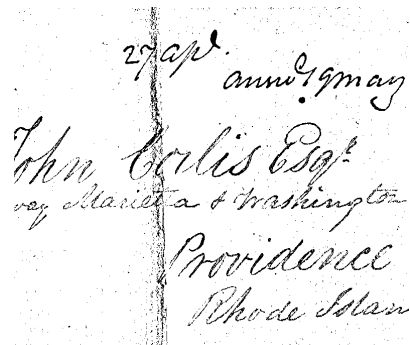 27 apl.
answd 19 may
John Corlis Esqr
way Marietta & Washington
Providence
Rhode Islan